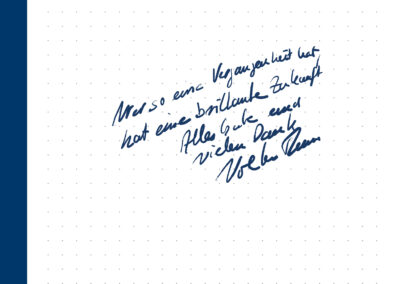 Wer so eine Vergangenheit hat,
hat eine brillante Zukunft
Alles Gute und
vielen Dank
Volker